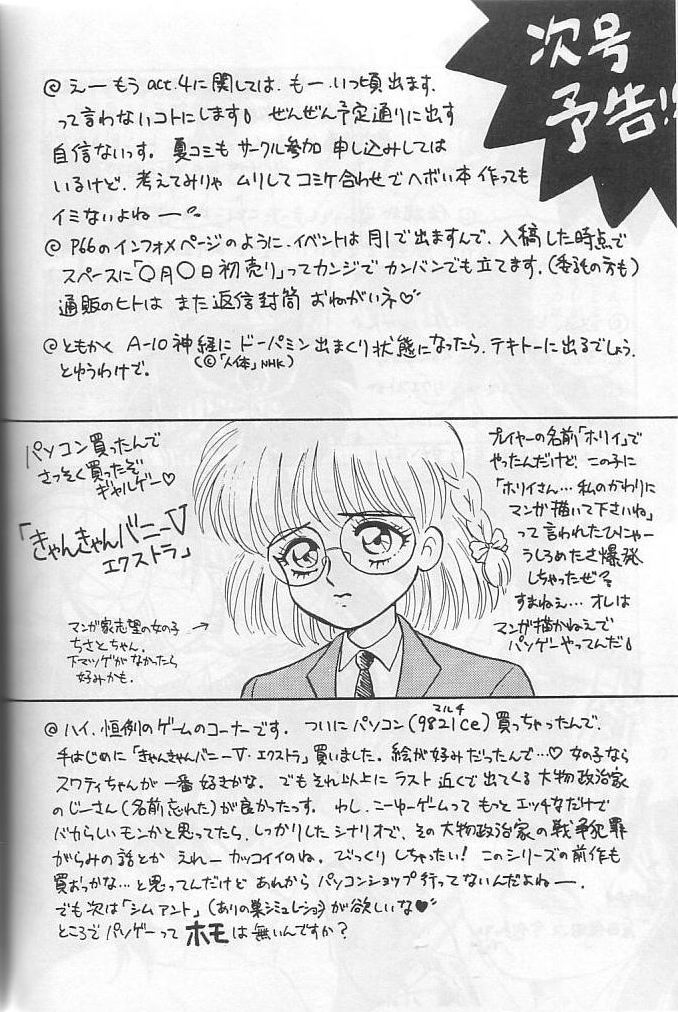 次号
予告!!
@ えー もう act.4に関しては、もー、いつ頃出ます、
って言わないコトにします。ぜんぜん予定通りに出す
自信ないっす。夏コミも サークル参加 申し込みしては
いるけど、考えてみりゃ ムリしてコミケ合わせで ヘボい本 作っても
イミないよねー。
@ P66のインフォメページのように、イベントは 月1で出ますんで、入稿した時点で
スペースに「〇月〇日初売り」ってカンジで カンバンでも立てます。(委託の方も)
通販のヒトは また返信封筒 おねがいネ♡
@ ともかく A-10神経に ドーパミン出まくり状態になったら、テキトーに出るでしょう。
(©「人体」NHK)
とゆうわけで。
パソコン買ったんで
さっそく買ったぞ
ギャルゲー♡
「きゃんきゃんバニーⅤ
エクストラ」
マンガ家志望の女の子 →
ちさとちゃん。
下マツゲがなかったら
好みかも。
プレイヤーの名前「ホリイ」で
やったんだけど、この子に
「ホリイさん…私のかわりに
マンガ描いて下さいね」
って言われたひにゃー
うしろめたさ爆発
しちゃったぜ
すまねえ… オレは
マンガ描かねえで
パソゲーやってんだ
@ ハイ、恒例のゲームのコーナーです。ついに パソコン(9821Ce)買っちゃったんで、
マルチ
手はじめに「きゃんきゃんバニーⅤ・エクストラ」買いました。絵が好みだったんで…♡ 女の子なら
スワティちゃんが 一番 好きかな。でも それ以上に ラスト 近くで出てくる 大物政治家
のじーさん(名前 忘れた)が良かったっす。わし、こーゆーゲームって もっと エッチなだけで
バカらしい モンかと思ってたら、しっかりした シナリオで、その 大物政治家の戦争犯罪
がらみの話とか えれー カッコイイのね。びっくり しちゃったい! このシリーズの前作も
買おっかな…と思ってんだけど あれから パソコンショップ 行ってないんだよねー。
でも次は「シムアント」(ありの巣シミュレーション)が欲しいな♥
ところで パソゲーって ホモは 無いんですか?